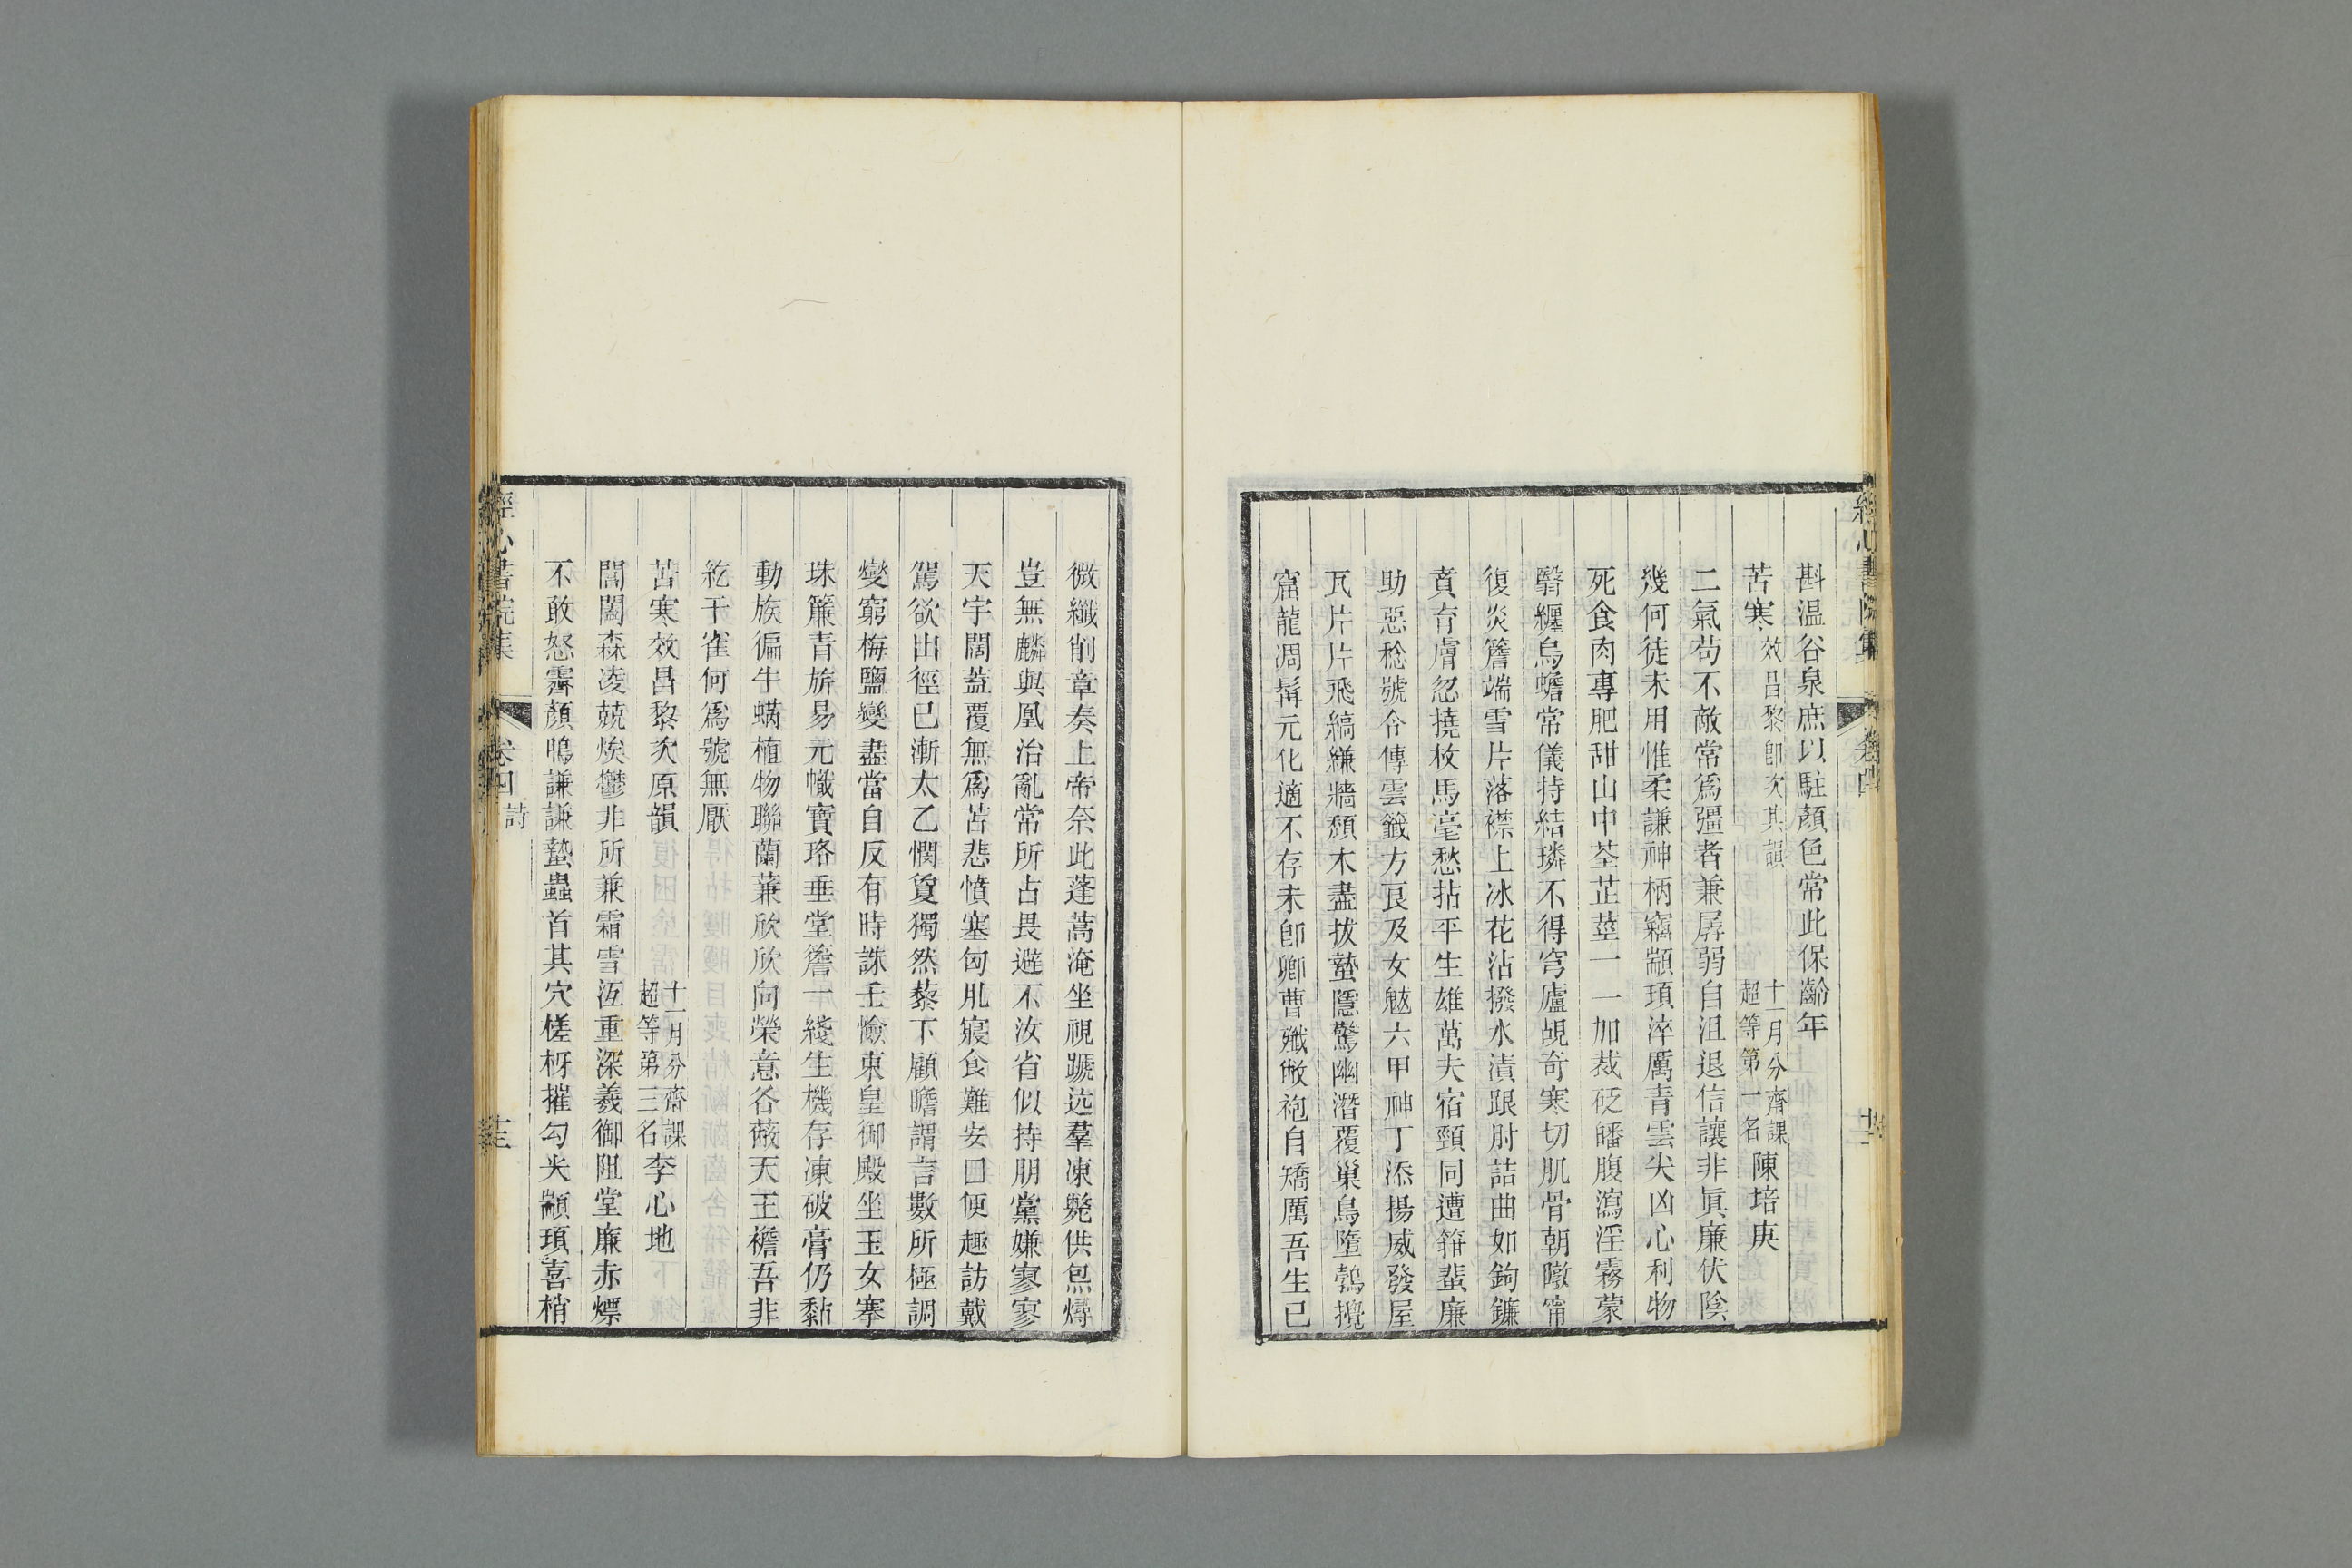 斟溫谷泉庶以駐顏色常此保齡年
苦寒效昌黎卽次其韻 十一月分齋課超等第一名 陳培庚
二氣苟不敵常爲彊者兼孱弱自沮退信讓非眞廉伏陰
幾何徒未用惟柔謙神柄竊顓頊淬厲青雲尖凶心利物
死食肉專肥甜山中荃芷莖一一加裁砭皤腹瀉淫霧蒙
翳纏烏蟾常儀持結璘不得穹廬覘奇寒切肌骨朝暾甯
復炎簷端雪片落襟上冰花沾撥水漬跟肘詰曲如鉤鐮
賁育膚忽撓枚馬毫愁拈平生雄萬夫宿頸同遭箝蜚廉
助惡稔號令傳雲籤方良及女魃六甲神丁添揚威發屋
瓦片片飛縞縑牆頹木盡拔蟄隱驚幽潛覆巢鳥墮鷇攪
窟龍凋髯元化適不存未卽卿曹殲敝袍自矯厲吾生已
微纖削章奏上帝奈此蓬蒿淹坐視蹏迒羣凍斃供炰燖
豈無麟與凰治亂常所占畏避不汝省似持朋黨嫌寥寥
天宇闊蓋覆無爲苫悲憤塞匈肊寢食難安㽃便趣訪戴
駕欲出徑已漸太乙憫㚆獨然藜下顧瞻謂言數所極調
燮窮梅鹽變盡當自反有時誅壬憸東皇御殿坐玉女搴
珠簾青旂易元幟寶珞垂堂簷一綫生機存凍破膏仍黏
動族徧牛螨植物聯蘭蒹欣欣向榮意谷蔽天王襜吾非
紇干雀何爲號無厭
苦寒效昌黎次原韻 十一月分齋課超等第三名 李心地
閶闔森凌兢炭鬱非所兼霜雪沍重深羲御阻堂廉赤熛
不敢怒霽顏鳴謙謙蟄蟲首其穴槎枒摧勾尖顓頊喜梢
經心書院集
卷四 詩